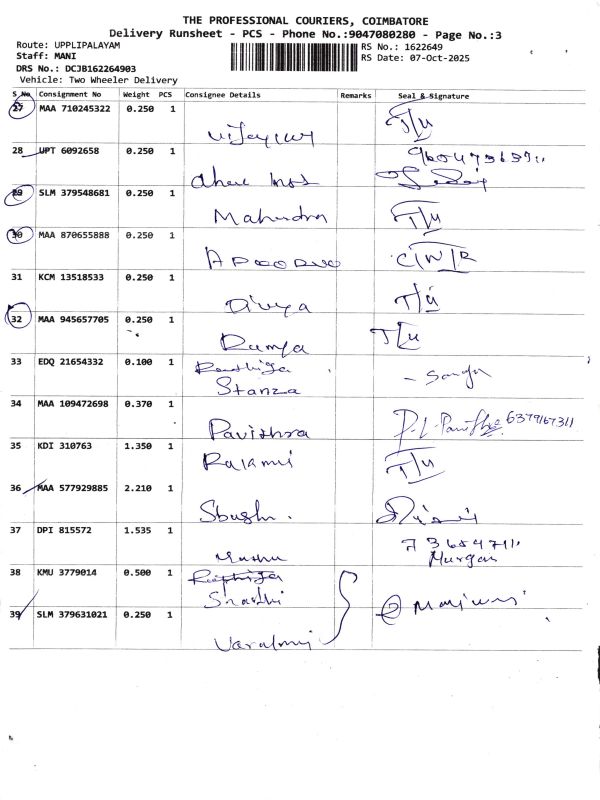 THE PROFESSIONAL COURIERS, COIMBATORE
Delivery Runsheet - PCS - Phone No.:9047080280 - Page No.:3
Route: UPPLIPALAYAM RS No.: 1622649
Staff: MANI RS Date: 07-Oct-2025
DRS No.: DCJB162264903
Vehicle: Two Wheeler Delivery
S No Consignment No Weight PCS Consignee Details Remarks Seal & Signature
27 MAA 710245322 0.250 1
T/U
28 UPT 6092658 0.250 1
29 SLM 379548681 0.250 1
Mahendra T/U
30 MAA 870655888 0.250 1
Apoorva C/N/R
31 KCM 13518533 0.250 1
Divya T/U
32 MAA 945657705 0.250 1
Ramya T/U
33 EDQ 21654332 0.100 1
Stanza
34 MAA 109472698 0.370 1
Pavithra 6379167311
35 KDI 310763 1.350 1
T/U
36 MAA 577929885 2.210 1
37 DPI 815572 1.535 1
Murgan
38 KMU 3779014 0.500 1
39 SLM 379631021 0.250 1